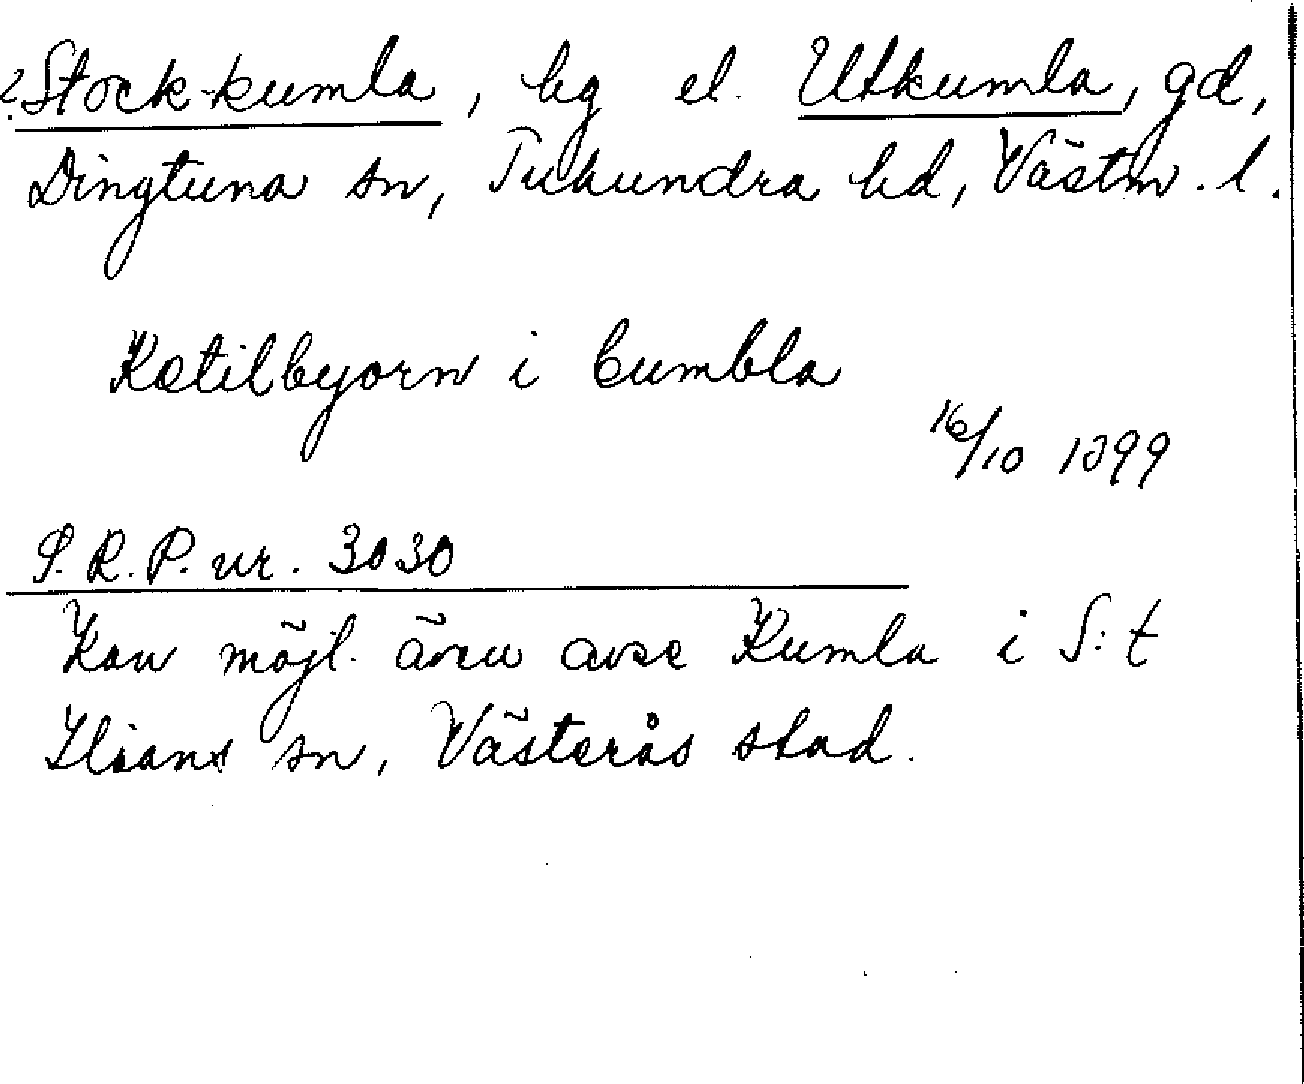 ? Stock-kumla, hg el. Utkumla, gd,
Dingtuna sn, Tuhundra hd, Västm. l.
Ketilbyorn i Cumbla
16/10 1399
S.R.P. nr. 3030
Kan möjl. även avse Kumla i S:t
Ilians sn, Västerås stad.